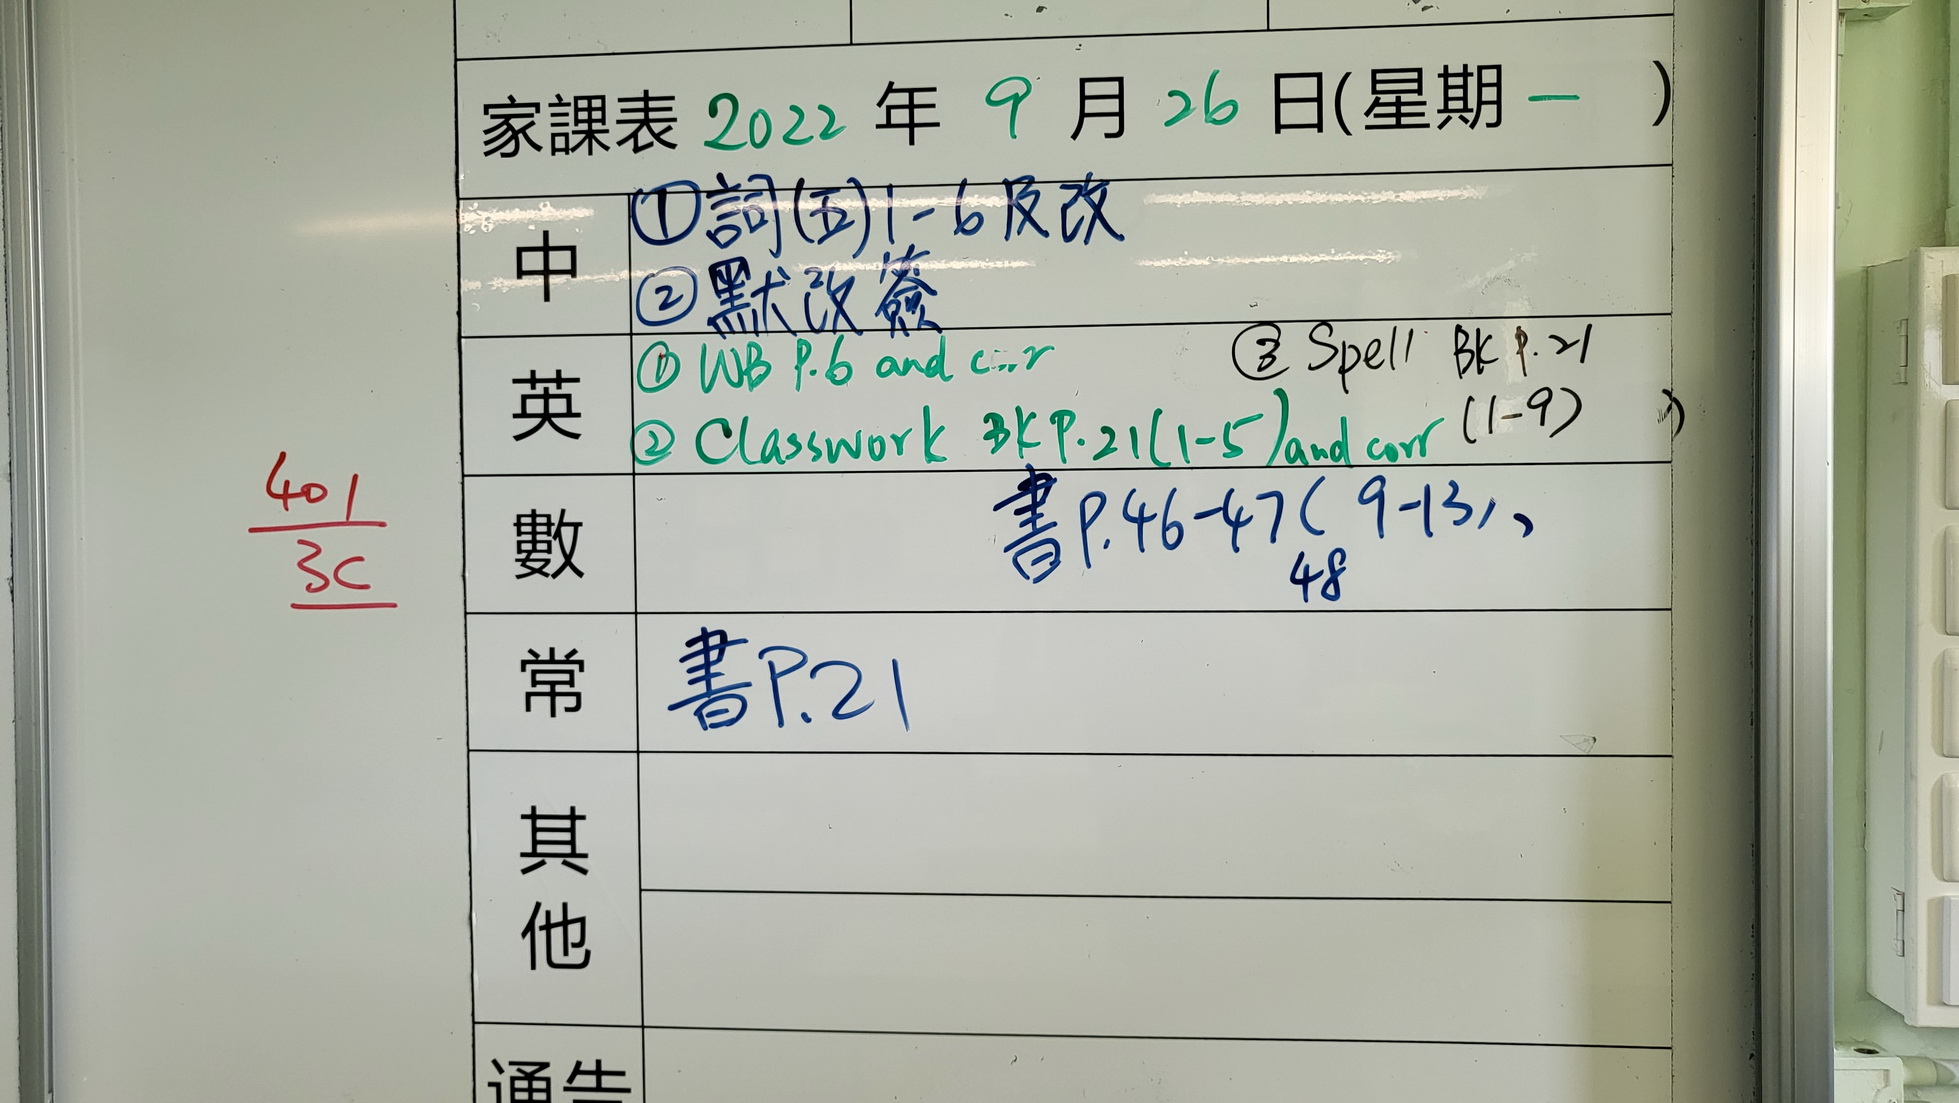 家課表 2022 年 9 月 26 日(星期一 )
中
①詞(五)1-6及改
②默改簽
英
① WB P.6 and corr
② Classwork BK P.21(1-5) and corr
③ Spell BK P.21
(1-9)
數
書P.46-47( 9-13)、
48
常
書P.21
其他
通告
401
3C